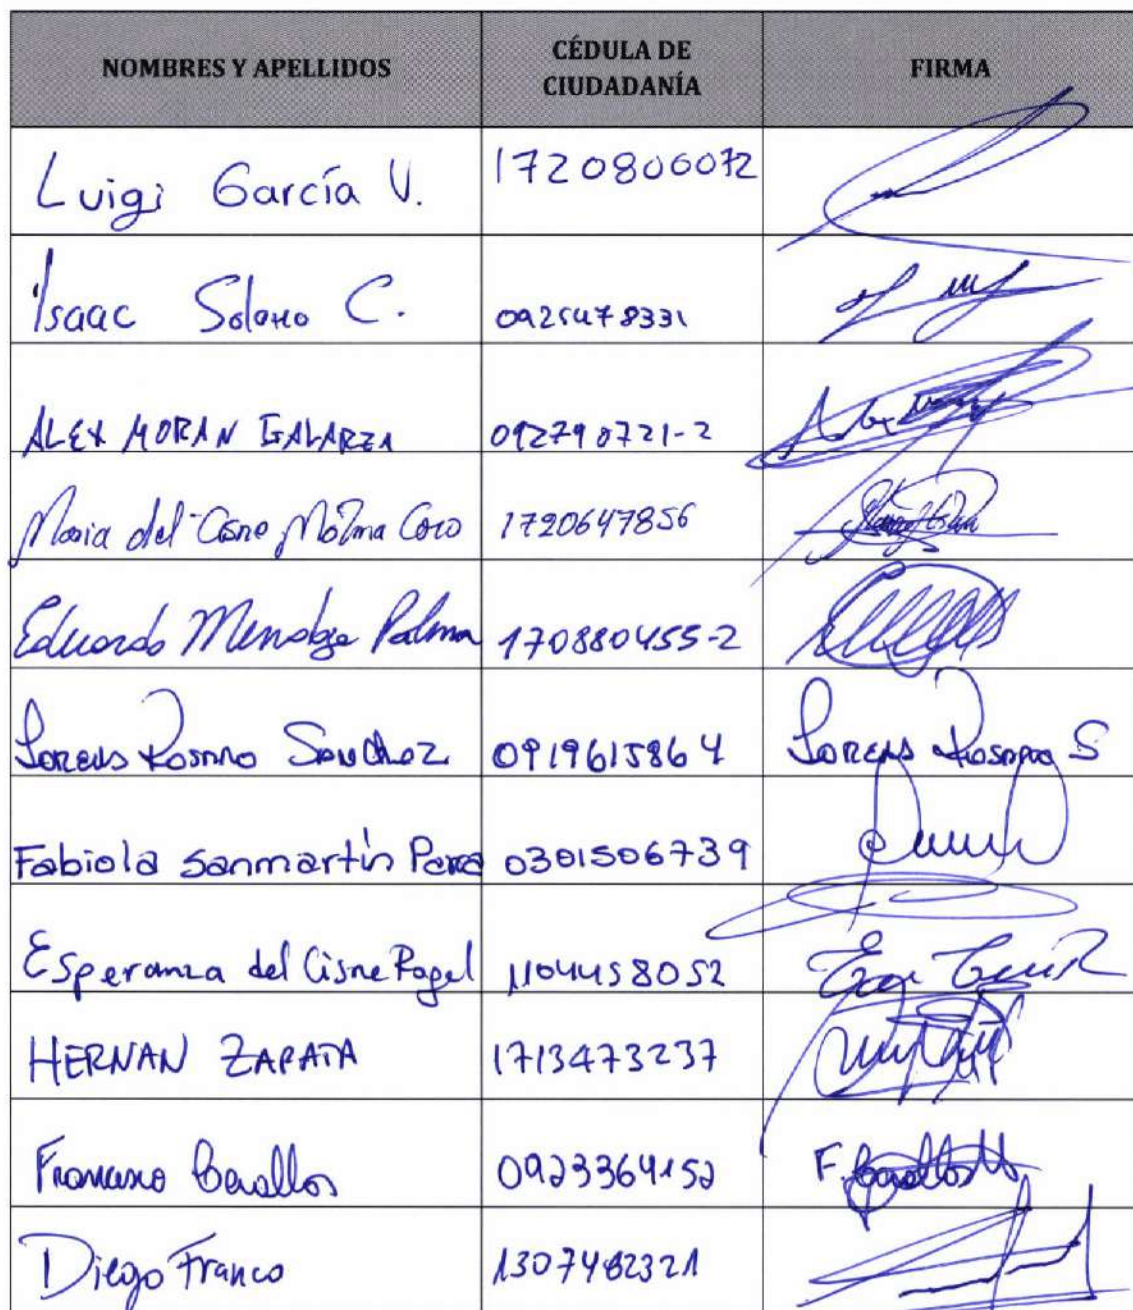 NOMBRES Y APELLIDOS
CÉDULA DE
CIUDADANÍA
FIRMA
Luigi García V.
1720806072
Isaac Solano C.
0925478331
ALEX MORAN GALARZA
092790721-2
Maria del Cisne Molina Coro
1720647856
Eduardo Mendoza Palma
170880455-2
Lorena Rosario Sanchez
0919615864
Lorena Rosario S
Fabiola Sanmartín Parra
0301506739
Esperanza del Cisne Rogel
1104458052
HERNAN ZAPATA
1713473237
Francisco Cevallos
0923364152
F. Cevallos
Diego Franco
1307482321